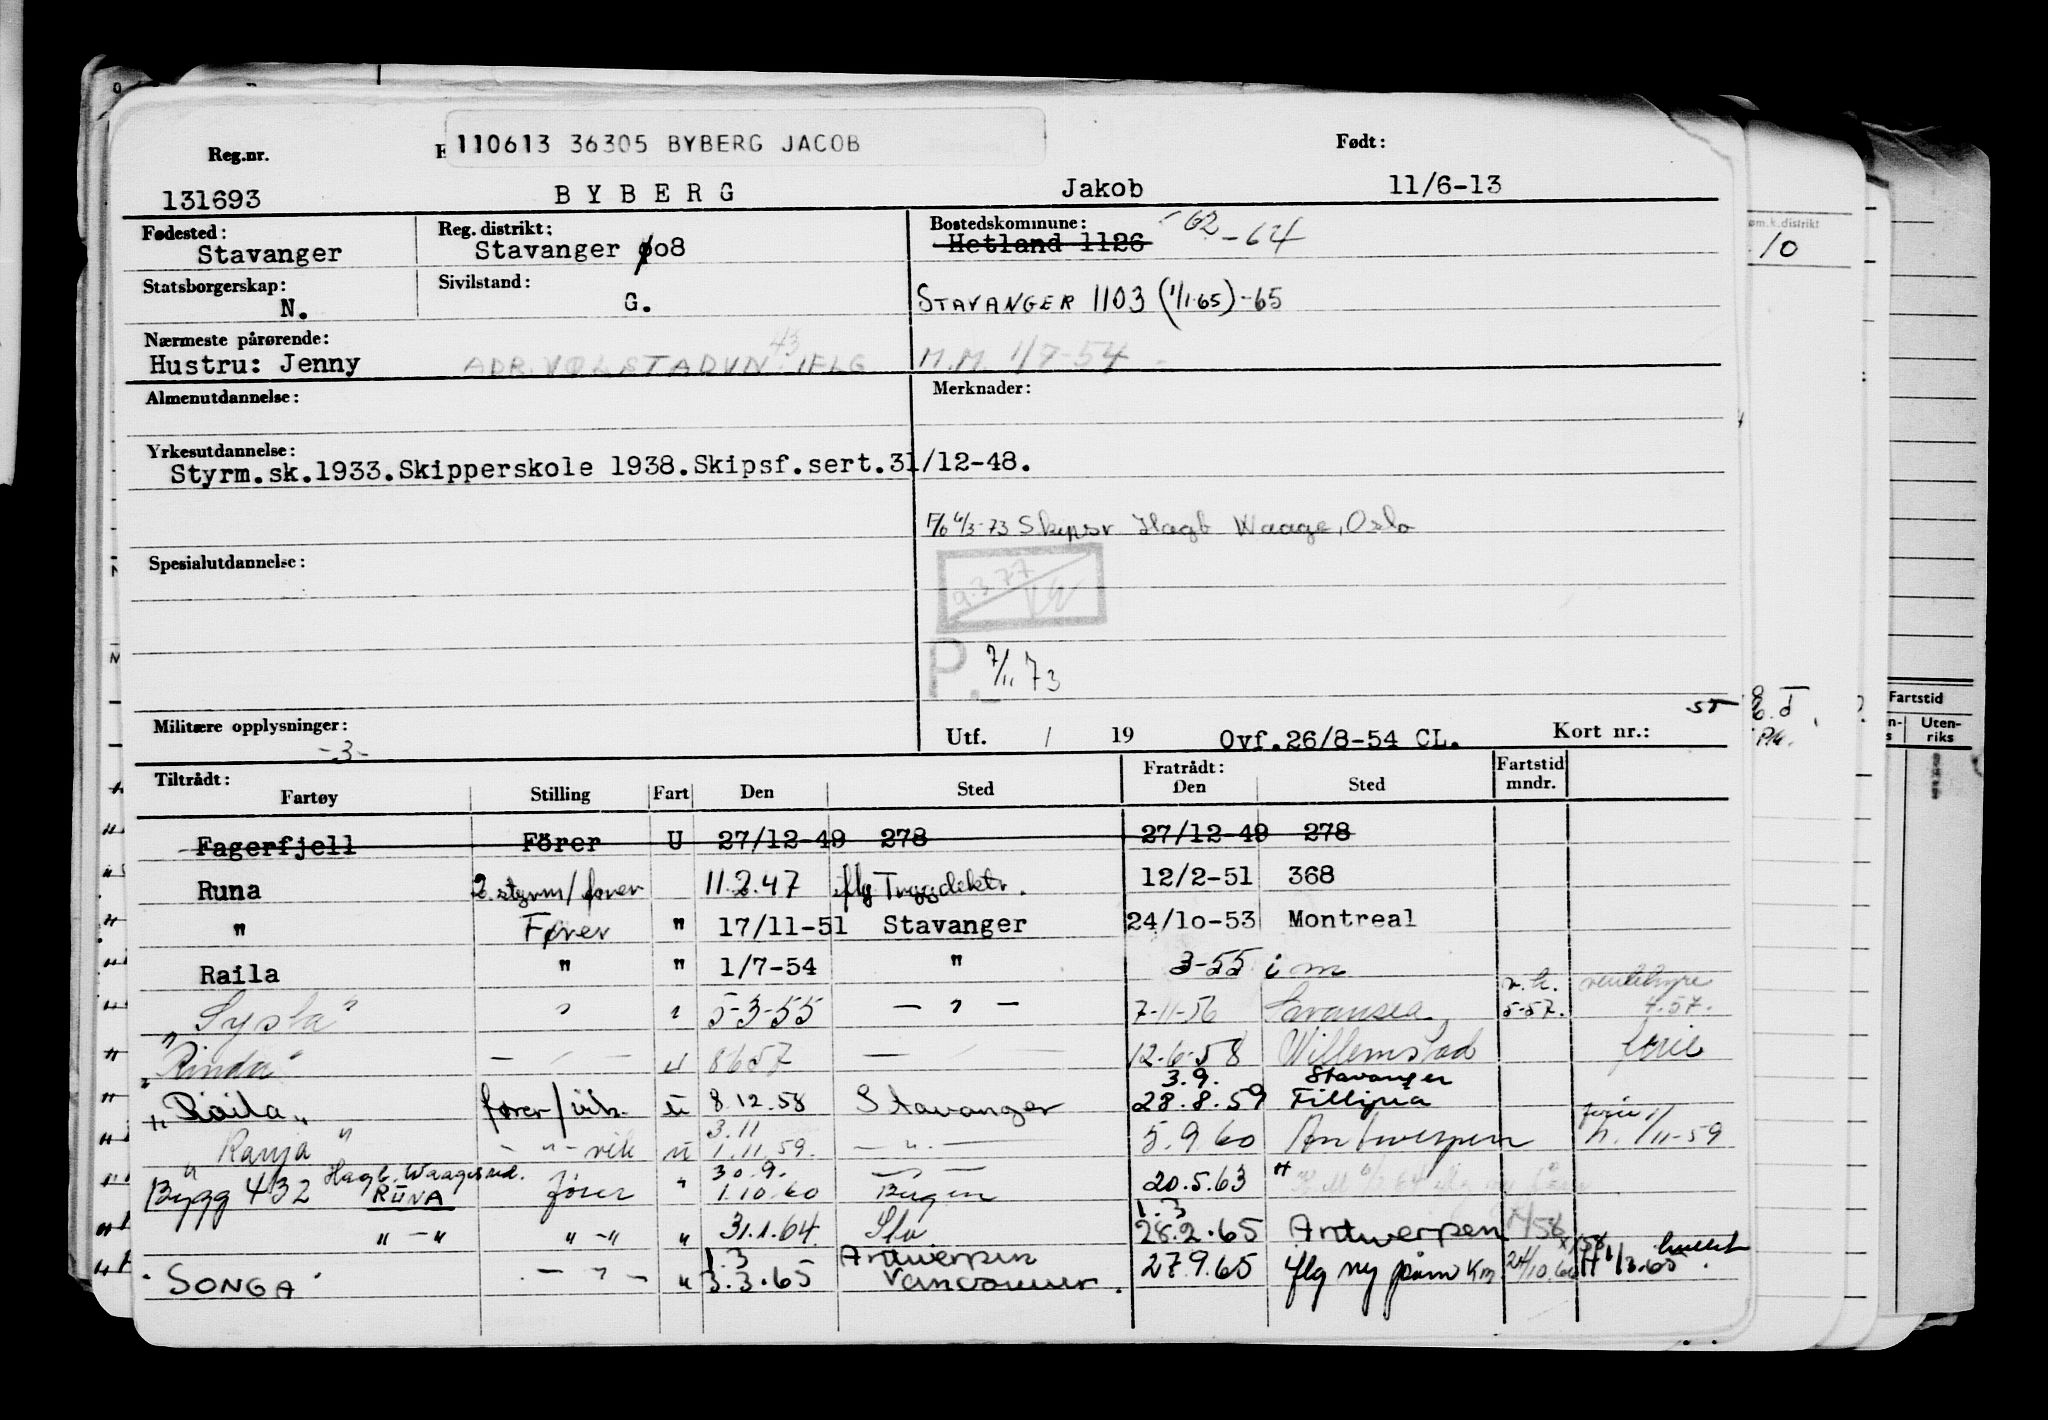 110613 36305 BYBERG JACOB
Reg.nr. Født:
131693 BYBERG Jakob 11/6-13
Fødested: Reg. distrikt: Bostedskommune: -62-64
Stavanger Stavanger øo8 Hetland 1126
Statsborgerskap: Sivilstand:
N. G. STAVANGER 1103 (1/1-65)-65
Nærmeste pårørende:
Hustru: Jenny M.M. 1/7-54
Almenutdannelse: Merknader:
Yrkesutdannelse:
Styrm.sk.1933.Skipperskole 1938.Skipsf.sert.31/12-48.
Skipsr Hagb Waage, Oslo
Spesialutdannelse:
9.3.77
P. 7/11 73
Militære opplysninger: Utf. / 19 Ovf.26/8-54 CL. Kort nr.:
-3-
Tiltrådt: Fratrådt: Fartstid
Fartøy Stilling Fart Den Sted Den Sted mndr.
Fagerfjell Förer U 27/12-49 278 27/12-49 278
Runa 2.styrm/fører 11.2.47 iflg Tryggdektr. 12/2-51 368
" Fører " 17/11-51 Stavanger 24/10-53 Montreal
Raila " " 1/7-54 " 3-55 i m
"Sysla" " " 5-3-55 — " — 7-11-56 Swansea 5-57. 4.57.
"Rinda" — " — 8657 — 12-6-58 Willemstad ferie
3.9. Stavanger
"Raila" fører/vik. u 8.12.58 Stavanger 28.8.59 Fillipia
3.11 ferie
"Ranja" - " - vik u 1.11.59. — " — 5.9.60 Antwerpen 1/11-59
Hagb. Waages red. 30.9.
Bygg 432 RUNA fører " 1.10.60 Bergen 20.5.63
1.3
" - " " - " " 31.1.64. Sta. 28.2.65 Antwerpen
1.3 Antwerpen
"SONGA" — " — " 3.3.65 Vancouver. 27.9.65 iflg ny påm Km 24/10.66 H 1/3.65
Fartstid
Uten-
riks